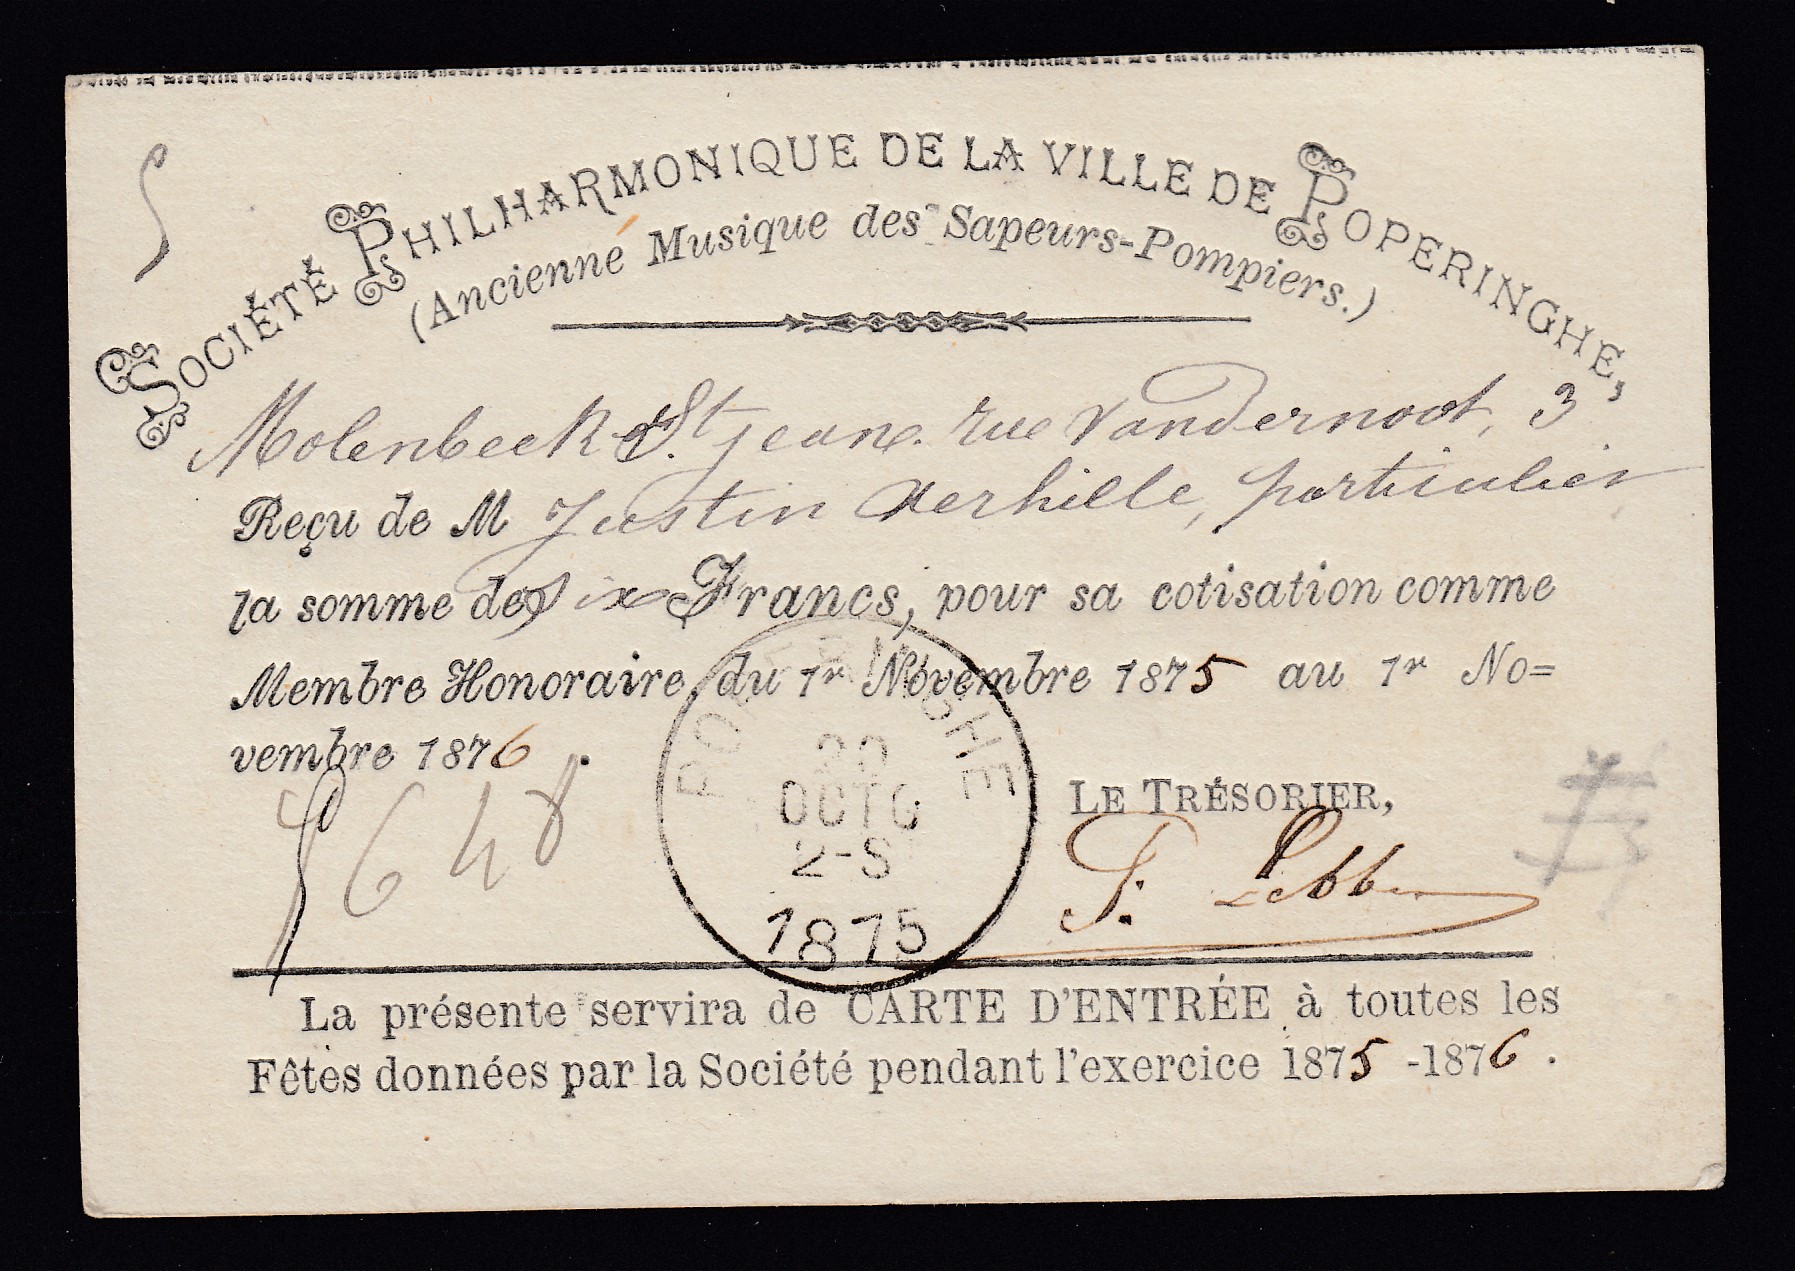 SOCIÉTÉ PHILHARMONIQUE DE LA VILLE DE POPERINGHE,
(Ancienné Musique des Sapeurs-Pompiers.)
Molenbeek St jean. rue Vandernoot, 3
Reçu de M Justin Verhille, particulier
la somme de Six Francs, pour sa cotisation comme
Membre Honoraire, du 1r Novembre 1875 au 1r No=
vembre 1876.
5648
POPERINGHE
20
OCTO
2-S
1875
LE TRÉSORIER,
La présente servira de CARTE D'ENTRÉE à toutes les
Fêtes données par la Société pendant l'exercice 1875-1876.